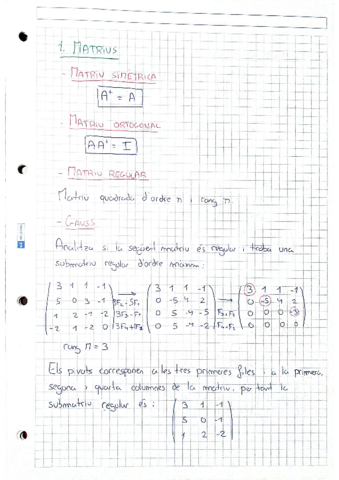 1. MATRIUS
- MATRIU SIMÈTRICA
Aᵗ = A
- MATRIU ORTOGONAL
AAᵗ = I
- MATRIU REGULAR
Matriu quadrada d'ordre n i rang n.
- GAUSS
Analitza si la següent matriu és regular i troba una
submatriu regular d'ordre màxim:
3 1 1 -1 → 3 1 1 -1 → 3 1 1 -1
5 0 3 -1 3F₂-5F₁ 0 -5 4 2 0 -5 4 2
1 2 -1 -2 3F₃-F₁ 0 5 -4 -5 F₃+F₂ 0 0 0 -3
-2 1 -2 0 0 5 -4 -2 0 0 0 0
rang M = 3
Els pivots corresponen a les tres primeres files i a la primera,
segona i quarta columnes de la matriu, per tant la
submatriu regular és:
3 1 -1
5 0 -1
1 2 -2